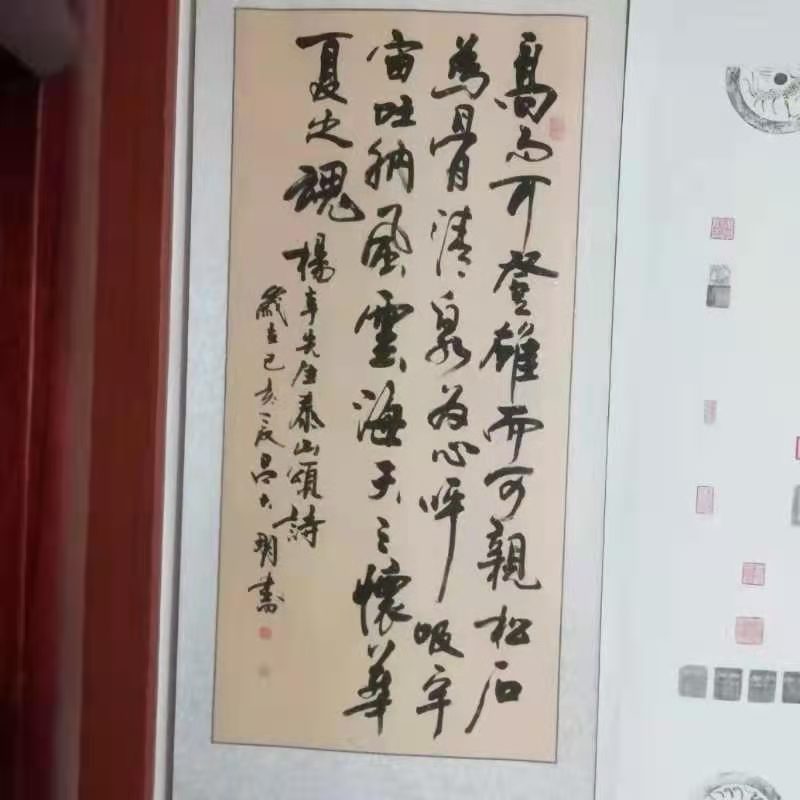 高而可登雄而可親松石
為骨清泉為心呼吸宇
宙吐納風雲海天之懷華
夏之魂
楊辛先生泰山頌詩
歲在己亥夏呂大明書